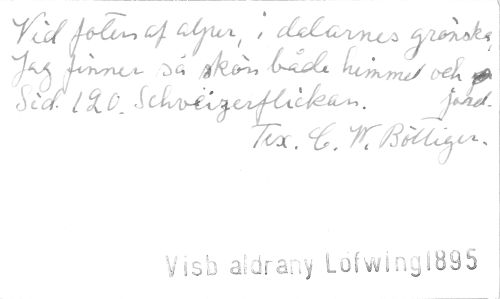 Vid foten af alper, i dalarnes grönska,
Jag finner så skön både himmel och
jord.
Sid. 120. Schweizerflickan.
Tex. C. W. Böttiger.
Visb aldrany Löfwing1895